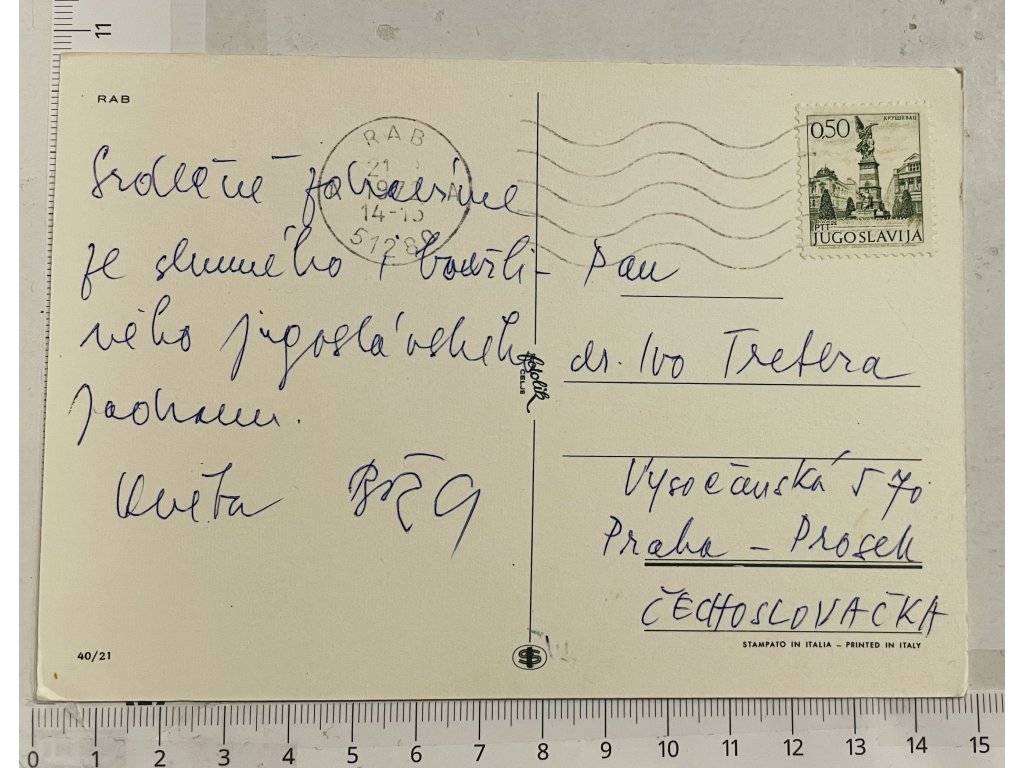 RAB
RAB
21
14-15
51280
0,50
КРУШЕВАЦ
PTT
JUGOSLAVIJA
Srdečně zdravíme
ze slunného i bouřli-
vého jugoslávského
Jadranu.
Květa
Pan
dr. Ivo Tretera
Vysočanská 570
Praha – Prosek
ČECHOSLOVAČKA
fotolik
CELJE
40/21
STAMPATO IN ITALIA – PRINTED IN ITALY
11
0 1 2 3 4 5 6 7 8 9 10 11 12 13 14 15